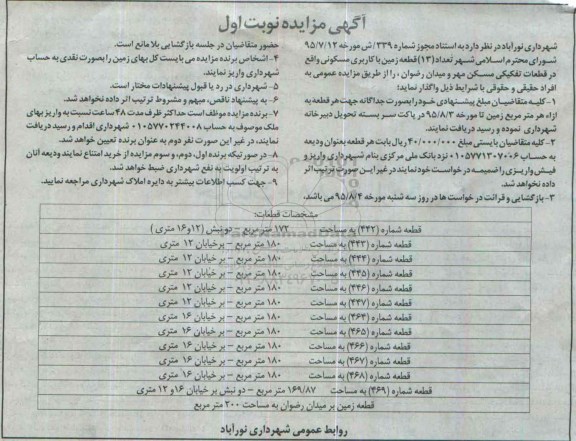 آگهی مزایده نوبت اول
شهرداری نورآباد در نظر دارد به استناد مجوز شماره ۳۳۹/ش مورخه ۹۵/۷/۱۲
شورای محترم اسلامی شهر تعداد (۱۳) قطعه زمین با کاربری مسکونی واقع
در قطعات تفکیکی مسکن مهر و میدان رضوان ، را از طریق مزایده عمومی به
افراد حقیقی و حقوقی با شرایط ذیل واگذار نماید:
۱- کلیه متقاضیان مبلغ پیشنهادی خود را بصورت جداگانه جهت هر قطعه به
ازاء هر متر مربع زمین تا مورخه ۹۵/۸/۳ در پاکت سر بسته تحویل دبیرخانه
شهرداری نموده و رسید دریافت نمایند.
۲- کلیه متقاضیان بایستی مبلغ ۴۰/۰۰۰/۰۰۰ ریال بابت هر قطعه بعنوان ودیعه
به حساب ۰۱۰۵۷۷۱۳۰۷۰۰۶ نزد بانک ملی مرکزی بنام شهرداری واریز و
فیش واریزی را ضمیمه درخواست خود نمایند در غیر این صورت ترتیب اثر
داده نخواهد شد.
۳- بازگشایی و قرائت درخواست ها در روز سه شنبه مورخه ۹۵/۸/۴ می باشد.
حضور متقاضیان در جلسه بازگشایی بلامانع است.
۴- اشخاص برنده مزایده می بایست کل بهای زمین را بصورت نقدی به حساب
شهرداری واریز نمایند.
۵- شهرداری در رد یا قبول پیشنهادات مختار است.
۶- به پیشنهاد ناقص، مبهم و مشروط ترتیب اثر داده نخواهد شد.
۷- برنده مزایده موظف است حداکثر ظرف مدت ۴۸ ساعت نسبت به واریز بهای
ملک موصوف به حساب ۰۱۰۵۷۷۰۲۴۴۰۰۸ شهرداری اقدام و رسید دریافت
نمایند، در غیر این صورت نفر دوم به عنوان برنده تعیین خواهد شد.
۸- در صورتیکه برنده اول، دوم، و سوم مزایده از خرید امتناع نمایند ودیعه آنان
به ترتیب اولویت به نفع شهرداری ضبط خواهد شد.
۹- جهت کسب اطلاعات بیشتر به دایره املاک شهرداری مراجعه نمایید.
مشخصات قطعات:
قطعه شماره (۴۴۲) به مساحت ۱۷۲ متر مربع - دونبش (۱۲و۱۶ متری)
قطعه شماره (۴۴۳) به مساحت ۱۸۰ متر مربع - برخیابان ۱۲ متری
قطعه شماره (۴۴۴) به مساحت ۱۸۰ متر مربع - بر خیابان ۱۲ متری
قطعه شماره (۴۴۵) به مساحت ۱۸۰ متر مربع - بر خیابان ۱۲ متری
قطعه شماره (۴۴۶) به مساحت ۱۸۰ متر مربع - بر خیابان ۱۲ متری
قطعه شماره (۴۴۷) به مساحت ۱۸۰ متر مربع - بر خیابان ۱۲ متری
قطعه شماره (۴۶۴) به مساحت ۱۸۰ متر مربع - بر خیابان ۱۶ متری
قطعه شماره (۴۶۵) به مساحت ۱۸۰ متر مربع - بر خیابان ۱۶ متری
قطعه شماره (۴۶۶) به مساحت ۱۸۰ متر مربع - بر خیابان ۱۶ متری
قطعه شماره (۴۶۷) به مساحت ۱۸۰ متر مربع - بر خیابان ۱۶ متری
قطعه شماره (۴۶۸) به مساحت ۱۸۰ متر مربع - بر خیابان ۱۶ متری
قطعه شماره (۴۶۹) به مساحت ۱۶۹/۸۷ متر مربع - دو نبش بر خیابان ۱۶و ۱۲ متری
قطعه زمین بر میدان رضوان به مساحت ۲۰۰ متر مربع
روابط عمومی شهرداری نورآباد